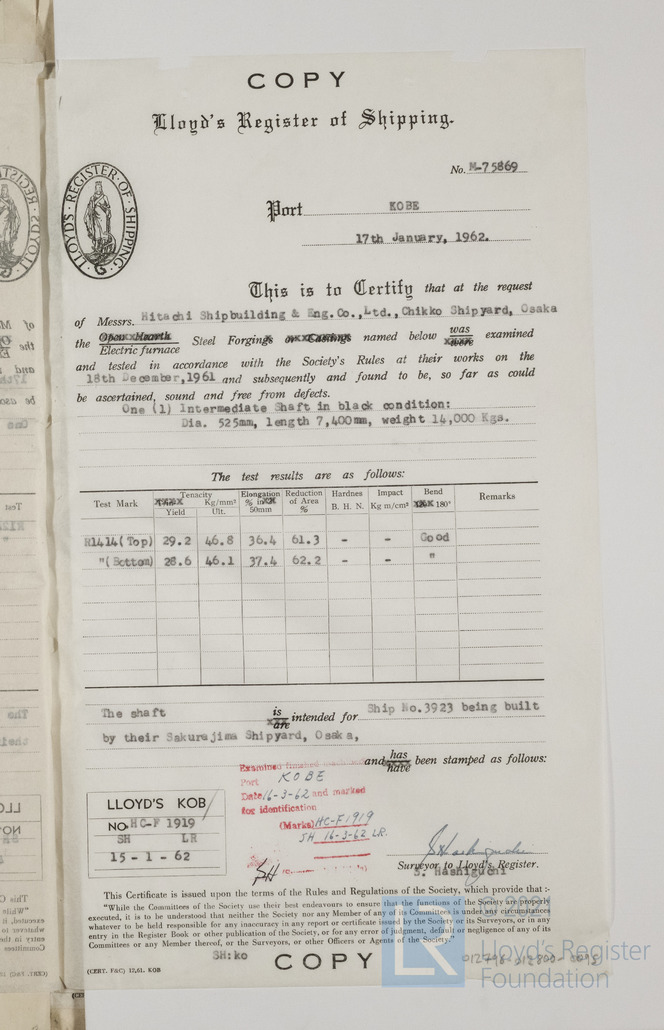 COPY
Lloyd's Register of Shipping.
No. M-75869
LLOYD'S · REGISTER · OF · SHIPPING ·
Port KOBE
17th January, 1962.
This is to Certify that at the request
of Messrs. Hitachi Shipbuilding & Eng.Co.,Ltd.,Chikko Shipyard, Osaka
the Open Hearth Steel Forgings or Castings named below was were examined
Electric furnace
and tested in accordance with the Society's Rules at their works on the
18th December,1961 and subsequently and found to be, so far as could
be ascertained, sound and free from defects.
One (1) Intermediate Shaft in black condition:
Dia. 525mm, length 7,400mm, weight 14,000 Kgs.
The test results are as follows:
Test Mark Tenacity Kg/mm² Yield Ult. Elongation % in 50mm Reduction of Area % Hardnes B. H. N. Impact Kg m/cm² Bend 180° Remarks
R1414(Top) 29.2 46.8 36.4 61.3 - - Good
"(Bottom) 28.6 46.1 37.4 62.2 - - "
The shaft is are intended for Ship No.3923 being built
by their Sakurajima Shipyard, Osaka,
and has have been stamped as follows:
Examined
Port KOBE
Date 16-3-62 and marked
for identification
(Marks) HC-F1919
SH 16-3-62 LR.
SH
LLOYD'S KOB
NO HC-F 1919
SH LR
15-1-62
Surveyor to Lloyd's Register.
S. Hashiguchi
This Certificate is issued upon the terms of the Rules and Regulations of the Society, which provide that :-
"While the Committees of the Society use their best endeavours to ensure that the functions of the Society are properly
executed, it is to be understood that neither the Society nor any Member of any of its Committees is under any circumstances
whatever to be held responsible for any inaccuracy in any report or certificate issued by the Society or its Surveyors, or in any
entry in the Register Book or other publication of the Society, or for any error of judgment, default or negligence of any of its
Committees or any Member thereof, or the Surveyors, or other Officers or Agents of the Society."
SH:ko
COPY
(CERT. F&C) 12,61. KOB
LR
© 2021
Lloyd's Register
Foundation